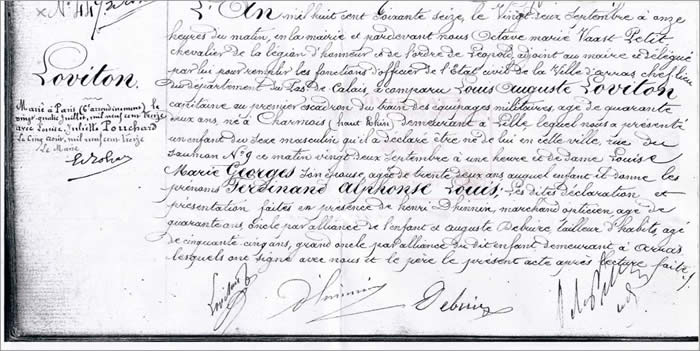 L'An mil huit cent soixante seize, le vingt deux Septembre à onze
heures du matin, en la mairie et pardevant nous Octave marie Vaast Petit
chevalier de la légion d'honneur et de l'ordre de Léopold, adjoint au maire et délégué
par lui pour remplir les fonctions d'officer de l'Etat civil de la Ville d'arras chef lieu
du département du Pas de Calais, a comparu Louis Auguste Loviton
capitaine au premier escadron du train des équipages militaires, agé de quarante
deux ans né à Charmois (haut Rhin) demeurant à Lille, lequel nous a présenté
un enfant du sexe masculin qu'il a déclaré être né de lui en cette ville, rue du
Saumon N° 9 ce matin vingt deux Septembre à une heure et de dame Louise
Marie Georges son épouse, agée de trente deux ans auquel enfant il donne les
prénoms Ferdinand Alphonse Louis; Les dites déclaration et
présentation faites en présence de henri Dhinnin, marchand opticien agé de
quarante ans, oncle par alliance de l'enfant et auguste Debure tailleur d'habits, agé
de cinquante cinq ans, grand oncle par alliance du dit enfant demeurant à arras
lesquels ont signé avec nous et le père le présent acte après lecture faite
Loviton
Marié à Paris (6e arrondissement) le
vingt quatre Juillet, mil neuf cent treize
avec Lucie, Juliette Pouchard
Le Cinq août, mil neuf cent treize
Le Maire
Loviton
Dhinnin
Debure